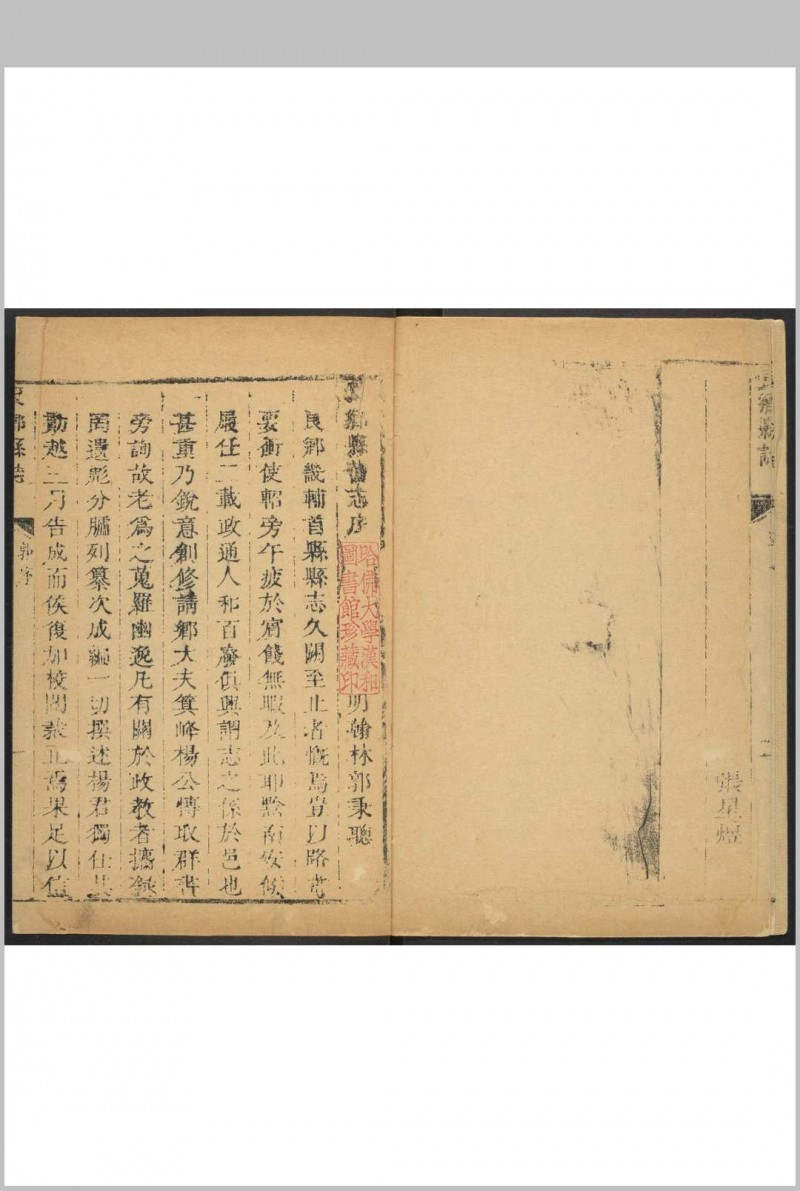 良鄉縣志
張星煜
良鄉縣舊志序
明翰林郭秉聰
哈佛大學漢和圖書館珍藏印
良鄉畿輔首縣縣志久闕至止者慨焉豈以路當
要衝使軺旁午疲於賓餞無暇及此耶黔南安侯
履任二載政通人和百廢俱興謂志之係於邑也
甚重乃銳意創修請鄉大夫箕峰楊公慱取群書
旁詢故老為之蒐羅幽逸凡有關於政教者攟錄
罔遺彪分臚列纂次成編一切撰述楊君獨任其
勤越三月告成而侯復加校閱裁正焉果足以信
良鄉縣志
郭序